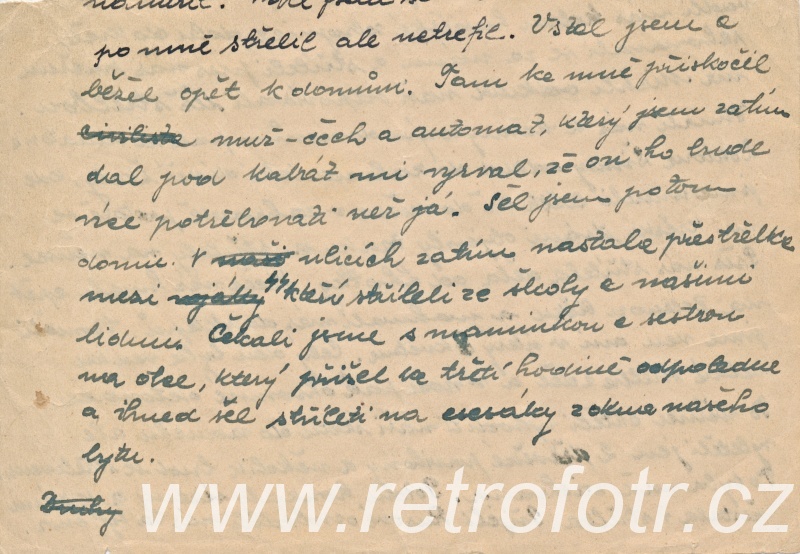 po mně střelil ale netrefil. Vstal jsem a
běžel opět k domům. Tam ke mně přiskočil
civilista muž-čech a automat, který jsem zatím
dal pod kabát mi vyrval, že on ho bude
více potřebovati než já. Šel jsem potom
domu. V naší ulicích zatím nastala přestřelka
mezi vojáky SS kteří stříleli ze školy a našimi
lidmi. Čekali jsme s maminkou a sestrou
na otce, který přišel ve třetí hodině odpoledne
a ihned šel stříleti na esesáky z okna našeho
bytu.
Druhý
www.retrofotr.cz